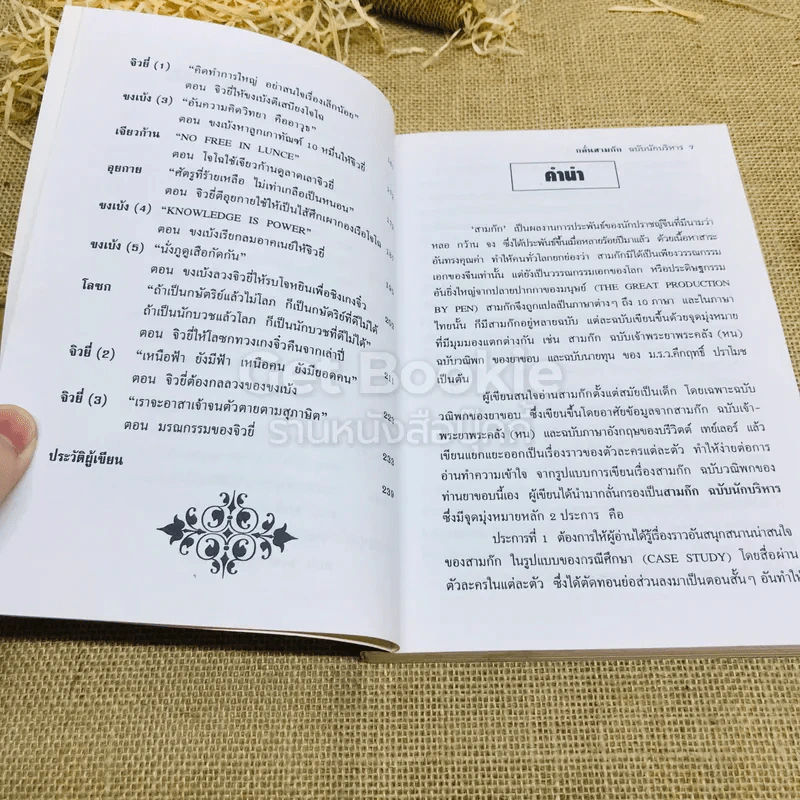 จิวยี่ (1) "คิดทำการใหญ่ อย่าสนใจเรื่องเล็กน้อย"
ตอน จิวยี่ให้ขงเบ้งตีเสบียงโจโฉ
ขงเบ้ง (3) "อันความคิดวิทยา คืออาวุธ"
ตอน ขงเบ้งหาลูกเกาทัณฑ์ 10 หมื่นให้จิวยี่
เจียวก้าน "NO FREE IN LUNCE"
ตอน โจโฉใช้เจียวก้านดูลาดเลาจิวยี่
อุยกาย "ศัตรูที่ร้ายเหลือ ไม่เท่าเกลือเป็นหนอน"
ตอน จิวยี่ตีอุยกายใช้ให้เป็นไส้ศึกเผากองเรือโจโฉ
ขงเบ้ง (4) "KNOWLEDGE IS POWER"
ตอน ขงเบ้งเรียกลมอาคเนย์ให้จิวยี่
ขงเบ้ง (5) "นั่งภูดูเสือกัดกัน"
ตอน ขงเบ้งลวงจิวยี่ให้รบโจหยินเพื่อชิงเกงจิ๋ว
โลซก "ถ้าเป็นกษัตริย์แล้วไม่โลภ ก็เป็นกษัตริย์ที่ดีไม่ได้
ถ้าเป็นนักบวชแล้วโลภ ก็เป็นนักบวชที่ดีไม่ได้" 203
ตอน จิวยี่ให้โลซกทวงเกงจิ๋วคืนจากเล่าปี่
จิวยี่ (2) "เหนือฟ้า ยังมีฟ้า เหนือคน ยังมียอดคน" 211
ตอน จิวยี่ต้องกลลวงของขงเบ้ง
จิวยี่ (3) "เราจะอาสาเจ้าจนตัวตายตามสุภาษิต" 221
ตอน มรณกรรมของจิวยี่ 233
ประวัติผู้เขียน 239
กลั่นสามก๊ก ฉบับนักบริหาร 7
คำนำ
'สามก๊ก' เป็นผลงานการประพันธ์ของนักปราชญ์จีนที่มีนามว่า
หลอ กว้าน จง ซึ่งได้ประพันธ์ขึ้นเมื่อหลายร้อยปีมาแล้ว ด้วยเนื้อหาสาระ
อันทรงคุณค่า ทำให้คนทั่วโลกยกย่องว่า สามก๊กมิได้เป็นเพียงวรรณกรรม
เอกของจีนเท่านั้น แต่ยังเป็นวรรณกรรมเอกของโลก หรือประดิษฐกรรม
อันยิ่งใหญ่จากปลายปากกาของมนุษย์ (THE GREAT PRODUCTION
BY PEN) สามก๊กจึงถูกแปลเป็นภาษาต่างๆ ถึง 10 ภาษา และในภาษา
ไทยนั้น ก็มีสามก๊กอยู่หลายฉบับ แต่ละฉบับเขียนขึ้นด้วยจุดมุ่งหมาย
ที่มีมุมมองแตกต่างกัน เช่น สามก๊ก ฉบับเจ้าพระยาพระคลัง (หน)
ฉบับวณิพก ของยาขอบ และฉบับนายทุน ของ ม.ร.ว.คึกฤทธิ์ ปราโมช
เป็นต้น
ผู้เขียนสนใจอ่านสามก๊กตั้งแต่สมัยเป็นเด็ก โดยเฉพาะฉบับ
วณิพกของยาขอบ ซึ่งเขียนขึ้นโดยอาศัยข้อมูลจากสามก๊ก ฉบับเจ้า-
พระยาพระคลัง (หน) และฉบับภาษาอังกฤษของบรีวิตต์ เทย์เลอร์ แล้ว
เขียนแยกแยะออกเป็นเรื่องราวของตัวละครแต่ละตัว ทำให้ง่ายต่อการ
อ่านทำความเข้าใจ จากรูปแบบการเขียนเรื่องสามก๊ก ฉบับวณิพกของ
ท่านยาขอบนี้เอง ผู้เขียนได้นำมากลั่นกรองเป็นสามก๊ก ฉบับนักบริหาร
ซึ่งมีจุดมุ่งหมายหลัก 2 ประการ คือ
ประการที่ 1 ต้องการให้ผู้อ่านได้รู้เรื่องราวอันสนุกสนานน่าสนใจ
ของสามก๊ก ในรูปแบบของกรณีศึกษา (CASE STUDY) โดยสื่อผ่าน
ตัวละครในแต่ละตัว ซึ่งได้ตัดทอนย่อส่วนลงมาเป็นตอนสั้นๆ อันทำให้
Get Bookie
ร้านหนังสือเก็ตบุ๊คกี้